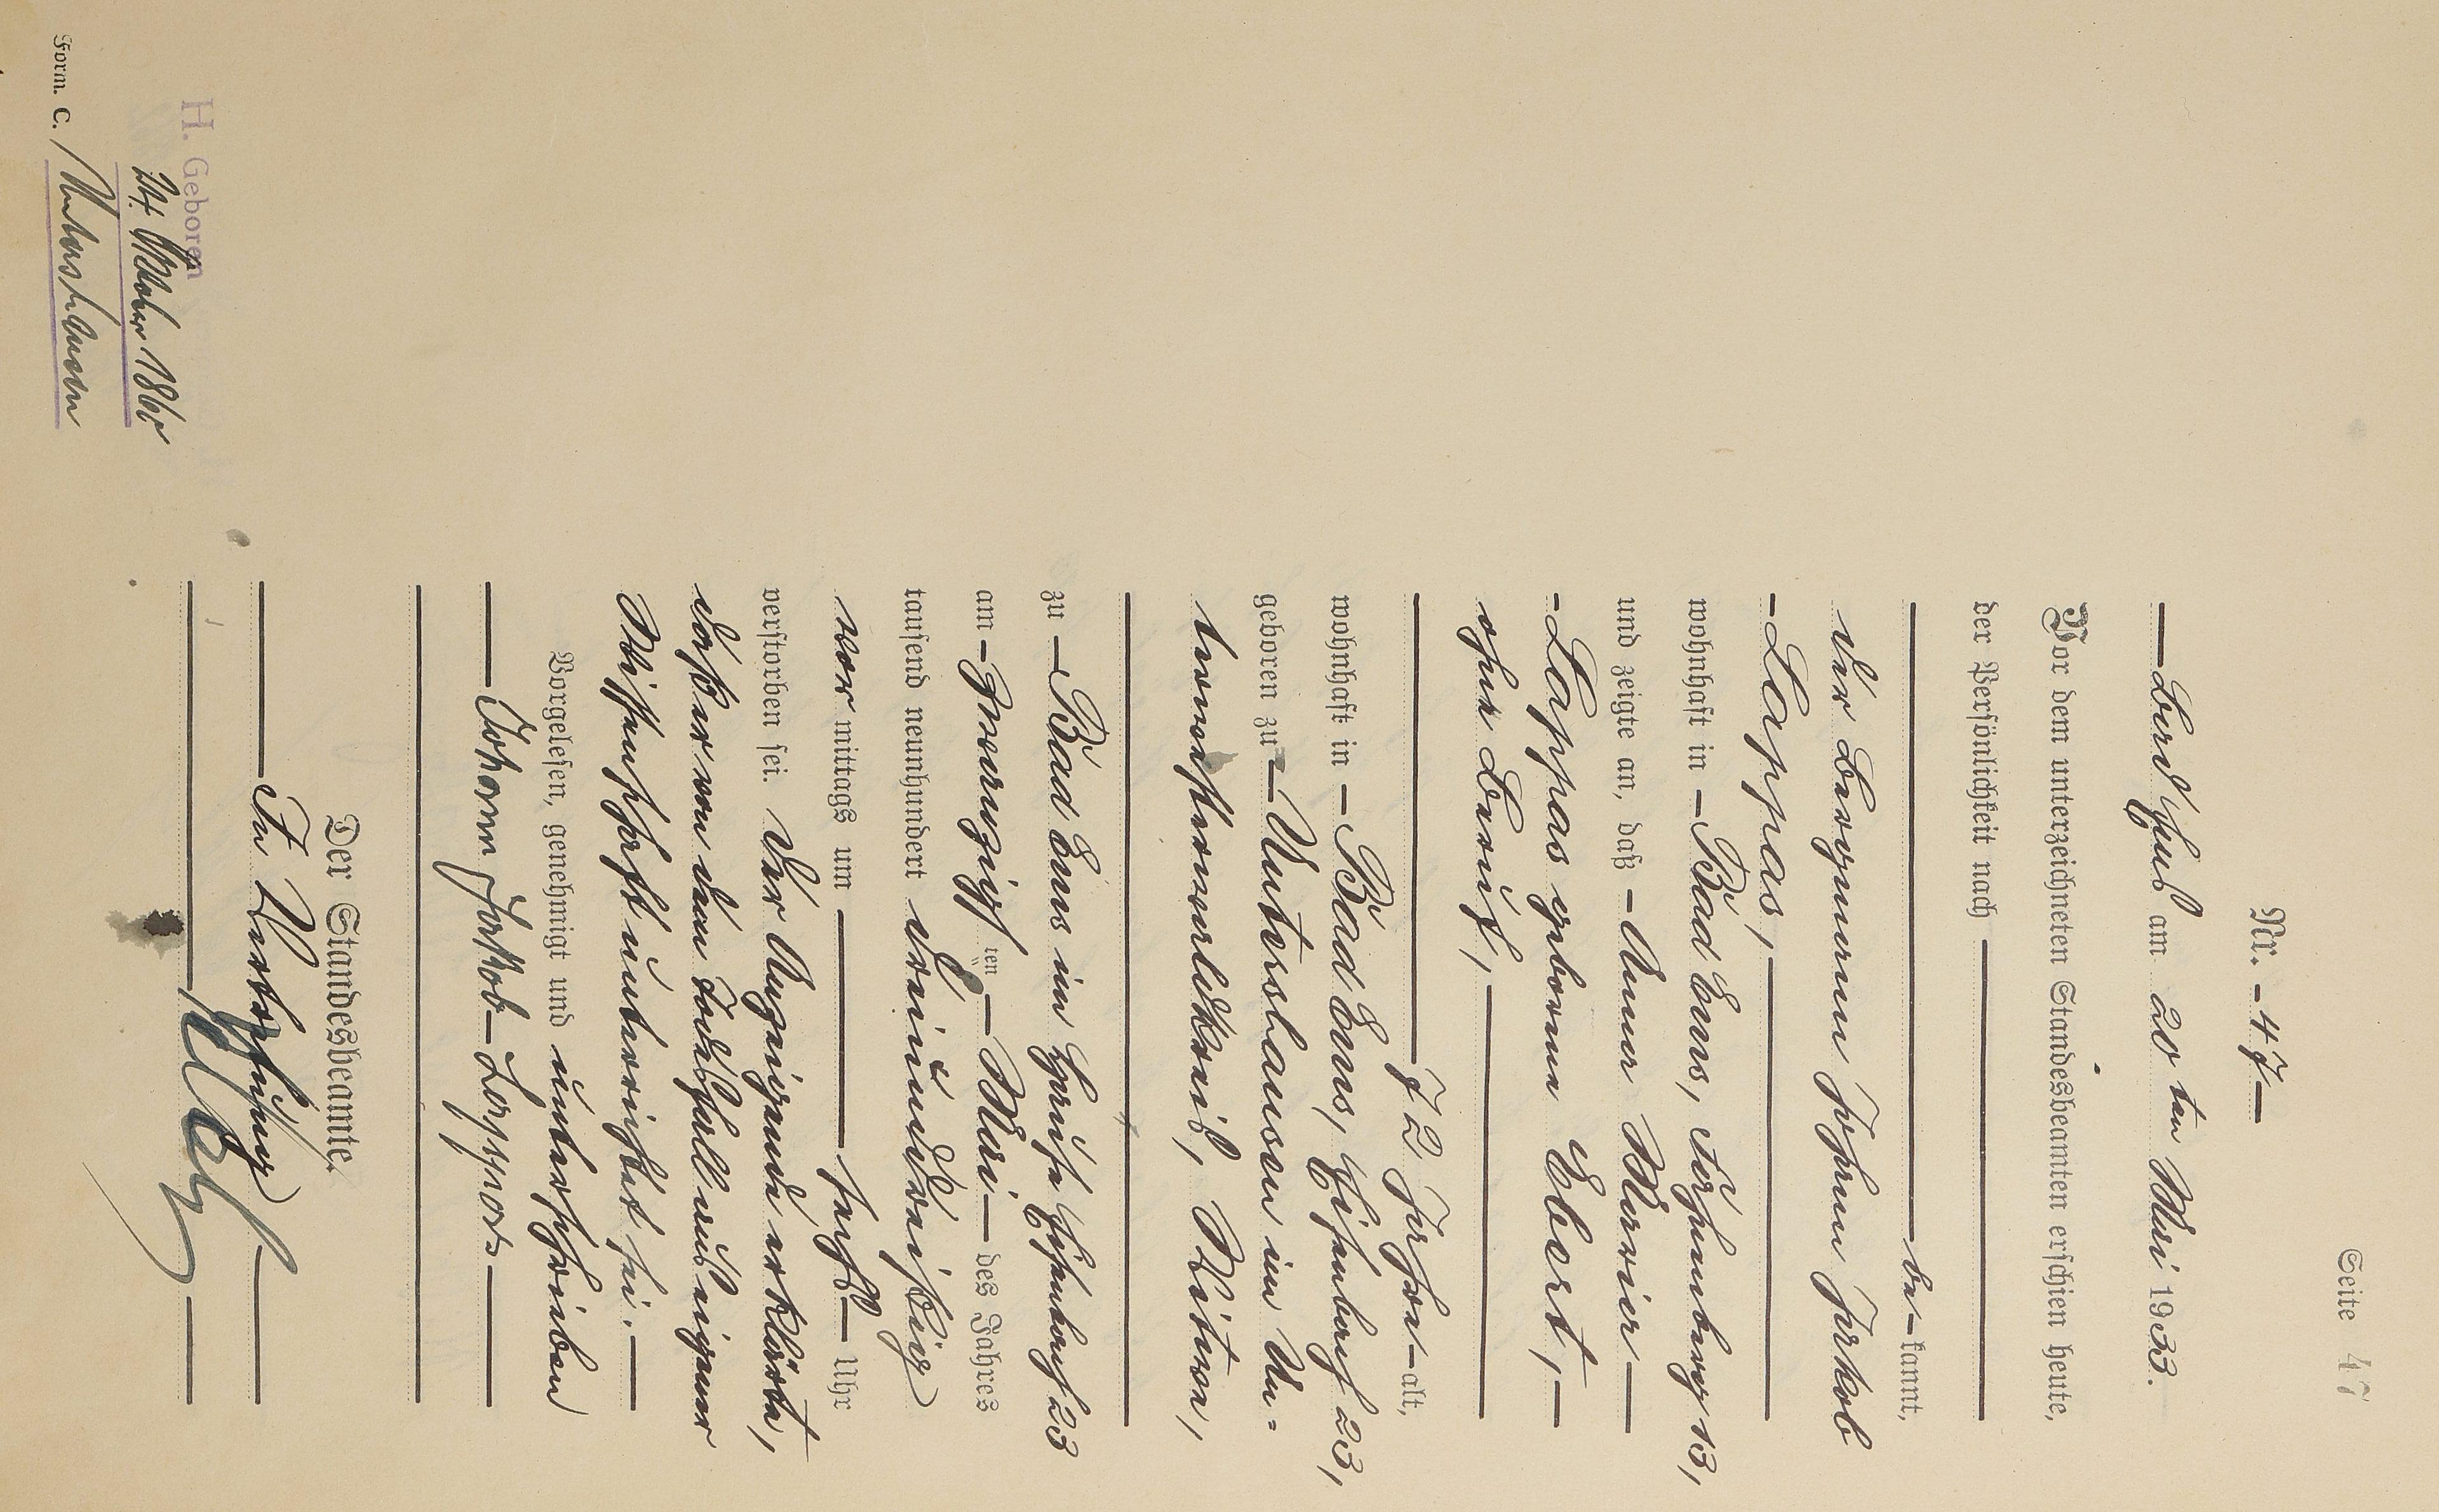 Seite 47
Nr. - 47 -
- Bad Ems am 20 ten Mai 1933.
Vor dem unterzeichneten Standesbeamten erschien heute,
der Persönlichkeit nach
be- kannt,
der Bergmann Johann Jakob
- Lappas, -
wohnhaft in - Bad Ems,
und zeigte an, daß - Anna Maria -
- Lappas geborene Ebert, -
ohne Beruf, -
72 Jahre - alt,
wohnhaft in - Bad Ems, 23,
geboren zu - Wutershausen im Un-
terwesterwaldkreis, Witwe,
zu - Bad Ems im Hause 23
am - zwanzigsten - Mai - des Jahres
tausend neunhundert dreiunddreißig
vor mittags um - sechs - Uhr
verstorben sei. Der Anzeigende erklärte,
daß er von dem Todesfall aus eigener
Wissenschaft unterrichtet sei. -
Vorgelesen, genehmigt und unterschrieben
- Johann Jakob - Lappas -
Der Standesbeamte.
In Vertretung
H. Geboren
24. Oktober 1860
Form. C.